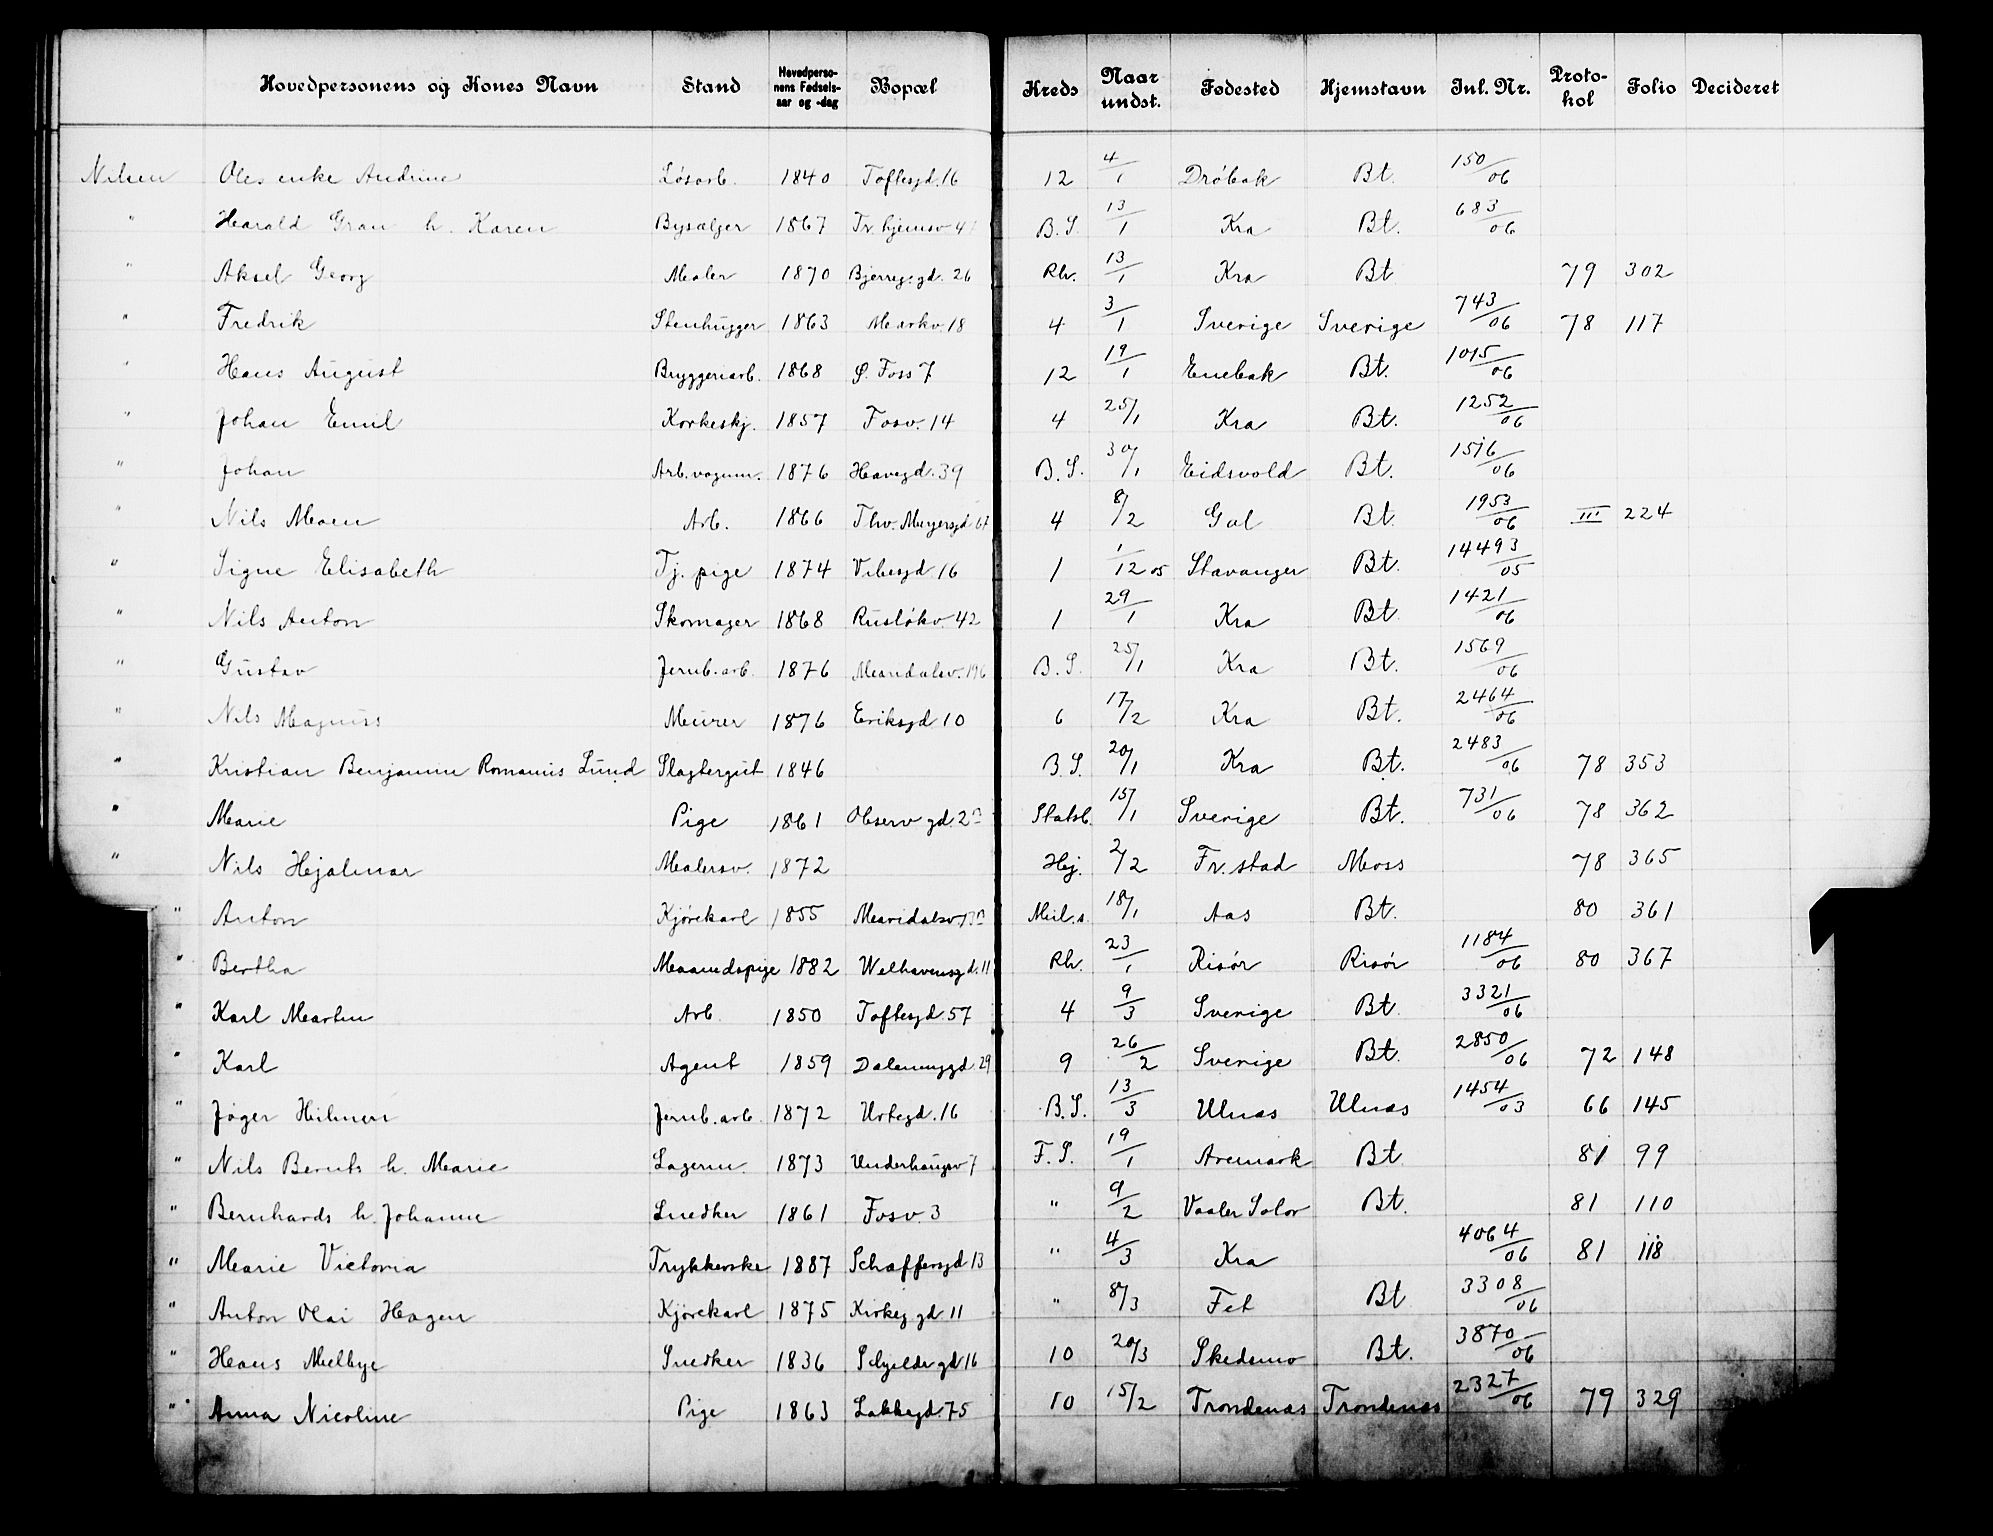 Hovedpersonens og Kones Navn Stand Hovedperso-nens Fødsels-aar og -dag Bopæl Kreds Naar undst. Fødested Hjemstavn Inl. Nr. Proto-kol Folio Decideret
Nilsen Oles enke Andrine Løsarb. 1840 Toftesgd. 16 12 4/1 Drøbak Bt. 150/06
" Harald Gran h. Karen Bysælger 1867 Tv. hjemsv 4 B. S. 13/1 Kra Bt. 683/06
" Aksel Georg Maler 1870 Bjerreg. gd. 26 Rh. 13/1 Kra Bt 79 302
" Fredrik Stenhugger 1863 Markv. 18 4 3/1 Sverige Sverige 743/06 78 117
" Hans August Bryggeriarb. 1868 Ø. Foss 7 12 19/1 Enebak Bt. 1015/06
" Johan Emil Korkeskj. 1857 Fosv. 14 4 25/1 Kra Bt. 1252/06
" Johan Arb. vognm. 1876 Havegd. 39 B. S. 30/1 Eidsvold Bt. 1516/06
" Nils Moen Arb. 1866 Thv. Meyersgd 67 4 8/2 Gol Bt. 1953/06 III 224
" Signe Elisabeth Tj. pige 1874 Vibesgd. 16 1 1/12 05 Stavanger Bt. 14493/05
" Nils Anton Skomager 1868 Rusløkv. 42 1 29/1 Kra Bt. 1421/06
" Gustav Jernb. arb. 1876 Maridalsv. 196 B. S. 25/1 Kra Bt. 1569/06
" Nils Magnus Murer 1876 Eriksgd. 10 6 17/2 Kra Bt. 2464/06
" Kristian Benjamin Romanus Lund Slagtergut 1846 B. S. 20/1 Kra Bt. 2483/06 78 353
" Marie Pige 1861 Observ gd. Statsb. 15/1 Sverige Bt. 731/06 78 362
" Nils Hejalmar Malersv. 1872 Hej. 2/2 Fr. stad Moss 78 365
" Anton Kjørekarl 1855 Maridalsv. Mil. s. 18/1 Aas Bt. 80 361
" Bertha Maanedspige 1882 Welhavensgd. 11 Rh. 23/1 Risør Risør 1184/06 80 367
" Karl Martin Arb. 1850 Toftesgd. 57 4 9/3 Sverige Bt. 3321/06
" Karl Agent 1859 Dalenenggd. 29 9 26/2 Sverige Bt. 2850/06 72 148
" Jøger Hilmen Jernb. arb. 1872 Urtegd. 16 B. S. 13/3 Ulnas Ulnas 1454/03 66 145
" Nils Bernts h. Marie Lagerm. 1873 Underhaugsv 7 F. S. 19/1 Aremark Bt. 81 99
" Bernhards h. Johanne Snedker 1861 Fosv. 3 " 9/2 Vaaler Solør Bt. 81 110
" Marie Victoria Trykkerske 1887 Schaffersgd 13 " 4/3 Kra 4064/06 81 118
" Anton Olai Hagen Kjørekarl 1875 Kirkeg gd 11 " 8/3 Fet Bt 3308/06
" Hans Melbye Snedker 1836 Schjelds gd 16 10 20/3 Skedsmo Bt. 3870/06
" Anna Nicoline Pige 1863 Lakkegd. 75 10 15/2 Trondenas Trondenas 2327/06 79 329